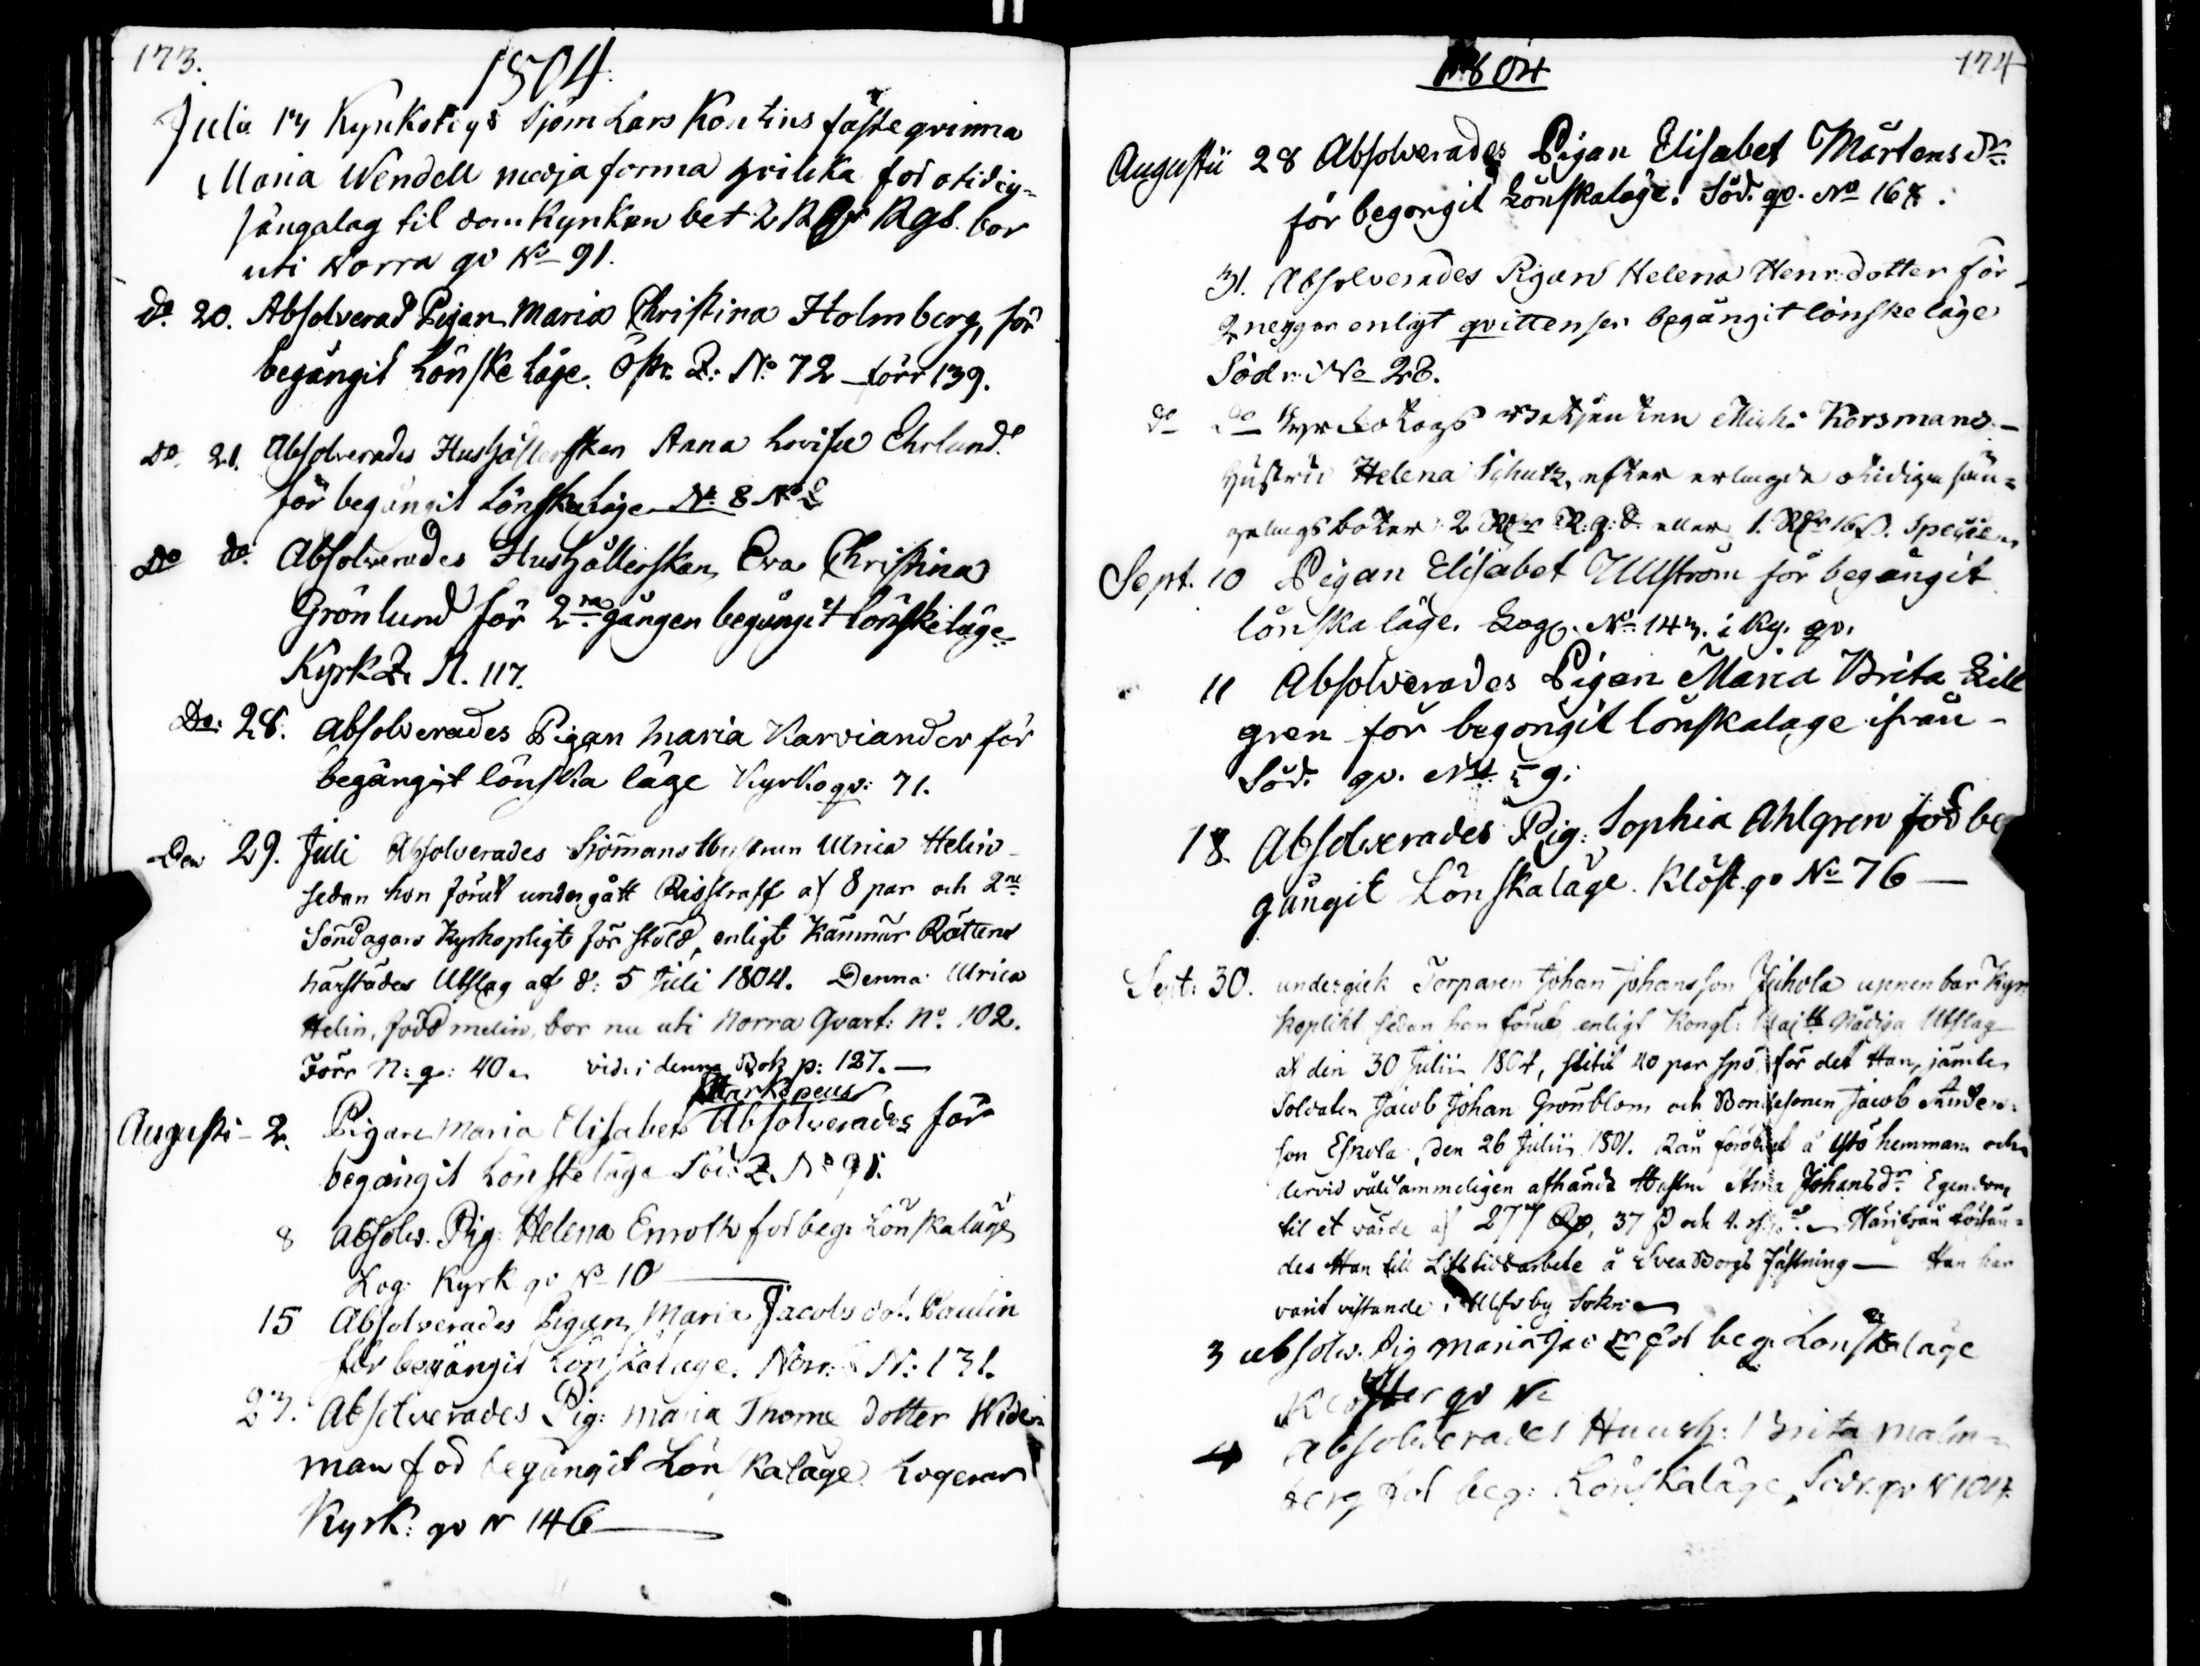 173.
1804.
Julii 13 Kyrkotogs Sjöm Lars Kontins fästeqvinna
Maria Wendell medja forma för otidig-
sängalag til domkyrkan bet 2 R Rgs. bor
uti Norra qv No 91.
do. 20. Absolverad Pigan Maria Christina Holmberg, för
begångit Lönskeläge. Östr. Q: No 72 – förr 139.
do. 21. Absolverades Hushållerskan Anna Lovisa Ehrlund
för begångit Lönskaläge No 8
do do. Absolverades Hushållerskan Eva Christina
Grönlund för 2ra gången begångit lönskeläge
Kyrk Q. N. 117.
Do: 28. Absolverades Pigan Maria Karviander för
begångit lönska läge Kyrko qv: 71.
Den 29. Juli Absolverades Sjömans Hustrun Ulrica Helin
sedan hon förut undergått Risstraff af 8 par och 2ne
Söndagars Kyrkopligt för stöld, enligt Kämnärs Rättens
härstädes Utslag af d: 5 Juli 1804. Denna Ulrica
Helin, född Melin, bor nu uti Norra Qvart: No. 102.
Förr N: q: 40. vide i denna Bok p: 127. –
Markopeus
Augusti – 2. Pigan Maria Elisabet Absolverades för
begångit Lönskeläge Söd: Q. No 91.
8 Absolv. Pig: Helena Enroth för beg. Lönskaläge
Log: Kyrk qv No 10
15 Absolverades Pigan Maria Jacobs dot. Paulin
för begångit Lönskaläge. Norr: N: 131.
23. Absolverades Pig: Maria Thome dotter Wider
man för begångit Lönskaläge Logerar
Kyrk: qv N 146
1804
174
Augustii 28 Absolverades Pigan Elisabet Mårtens dr
för begongit Lönskaläge. Söd. qv. No 168.
31. Absolverades Pigan Helena Henr. dotter för
2ne ggr enligt qvittenser begångit lönskeläge
Södr No 28.
do do Kyrkotogs Mich: Korsmans –
Hustru Helena Schutz, efter erlagda otidiga sän-
galags böter 2 Rdr R: g: d. eller 1. Rdr 16 s. Specie
Sept. 10 Pigan Elisabet Ullström för begångit
lönska läge. Log. No 143. i Ky. qv.
11 Absolverades Pigan Maria Brita Lill
gren för begongit lönskalage ifrån
Söd. qv. No 59:
18. Absolverades Pig: Sophia Ahlgren för be
gångit Lönskaläge. Klöst. qv No 76 –
Sept: 30. undergick Torparen Johan Johansson Juhola uppenbar Kyr
koplikt sedan han förut enligt Kongl: Maj:ts Nådiga Utslag
af den 30 Julii 1804, slitit 40 par spö för det Han, jämte
Soldaten Jacob Johan Grönblom och Bondesonen Jacob Anders-
son Eskola, den 26 Julii 1801. Rån föröfvat å Ytö hemman och
dervid våldsammeligen afhändt Hustru Anna Johansdr. Egendom
til et värde af 277 Rd, 37 s och 4. Härifrån försän-
des Han till Lifstidsarbete å Sveaborgs Fästning – Han har
varit vistande i Ulfsby Sokn
3 absolv. Pig Maria Jac dr för beg. Lonskaläge
Kloster qv No
4 Absolverades Hush: Brita Malm-
berg för beg: Lönskaläge, Södr. qv N 104.